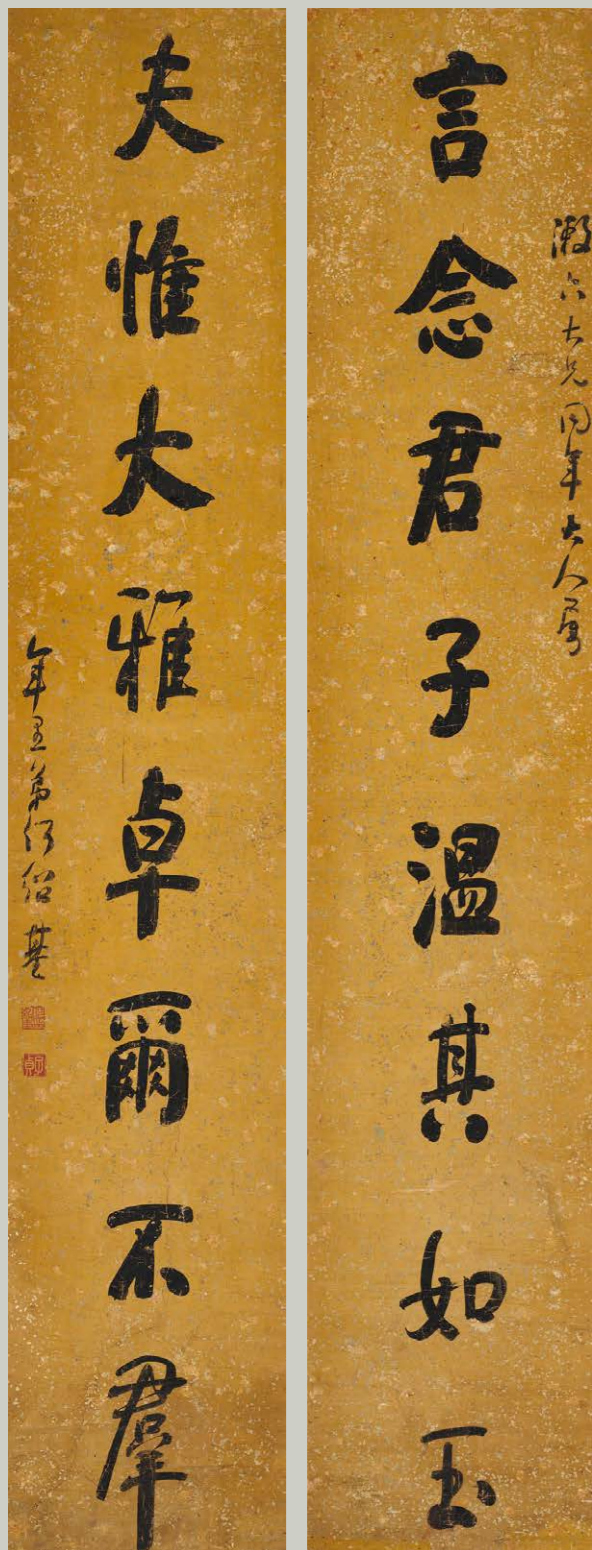 言念君子溫其如玉
六大兄同年大人屬
夫惟大雅卓爾不羣
年愚弟何紹基